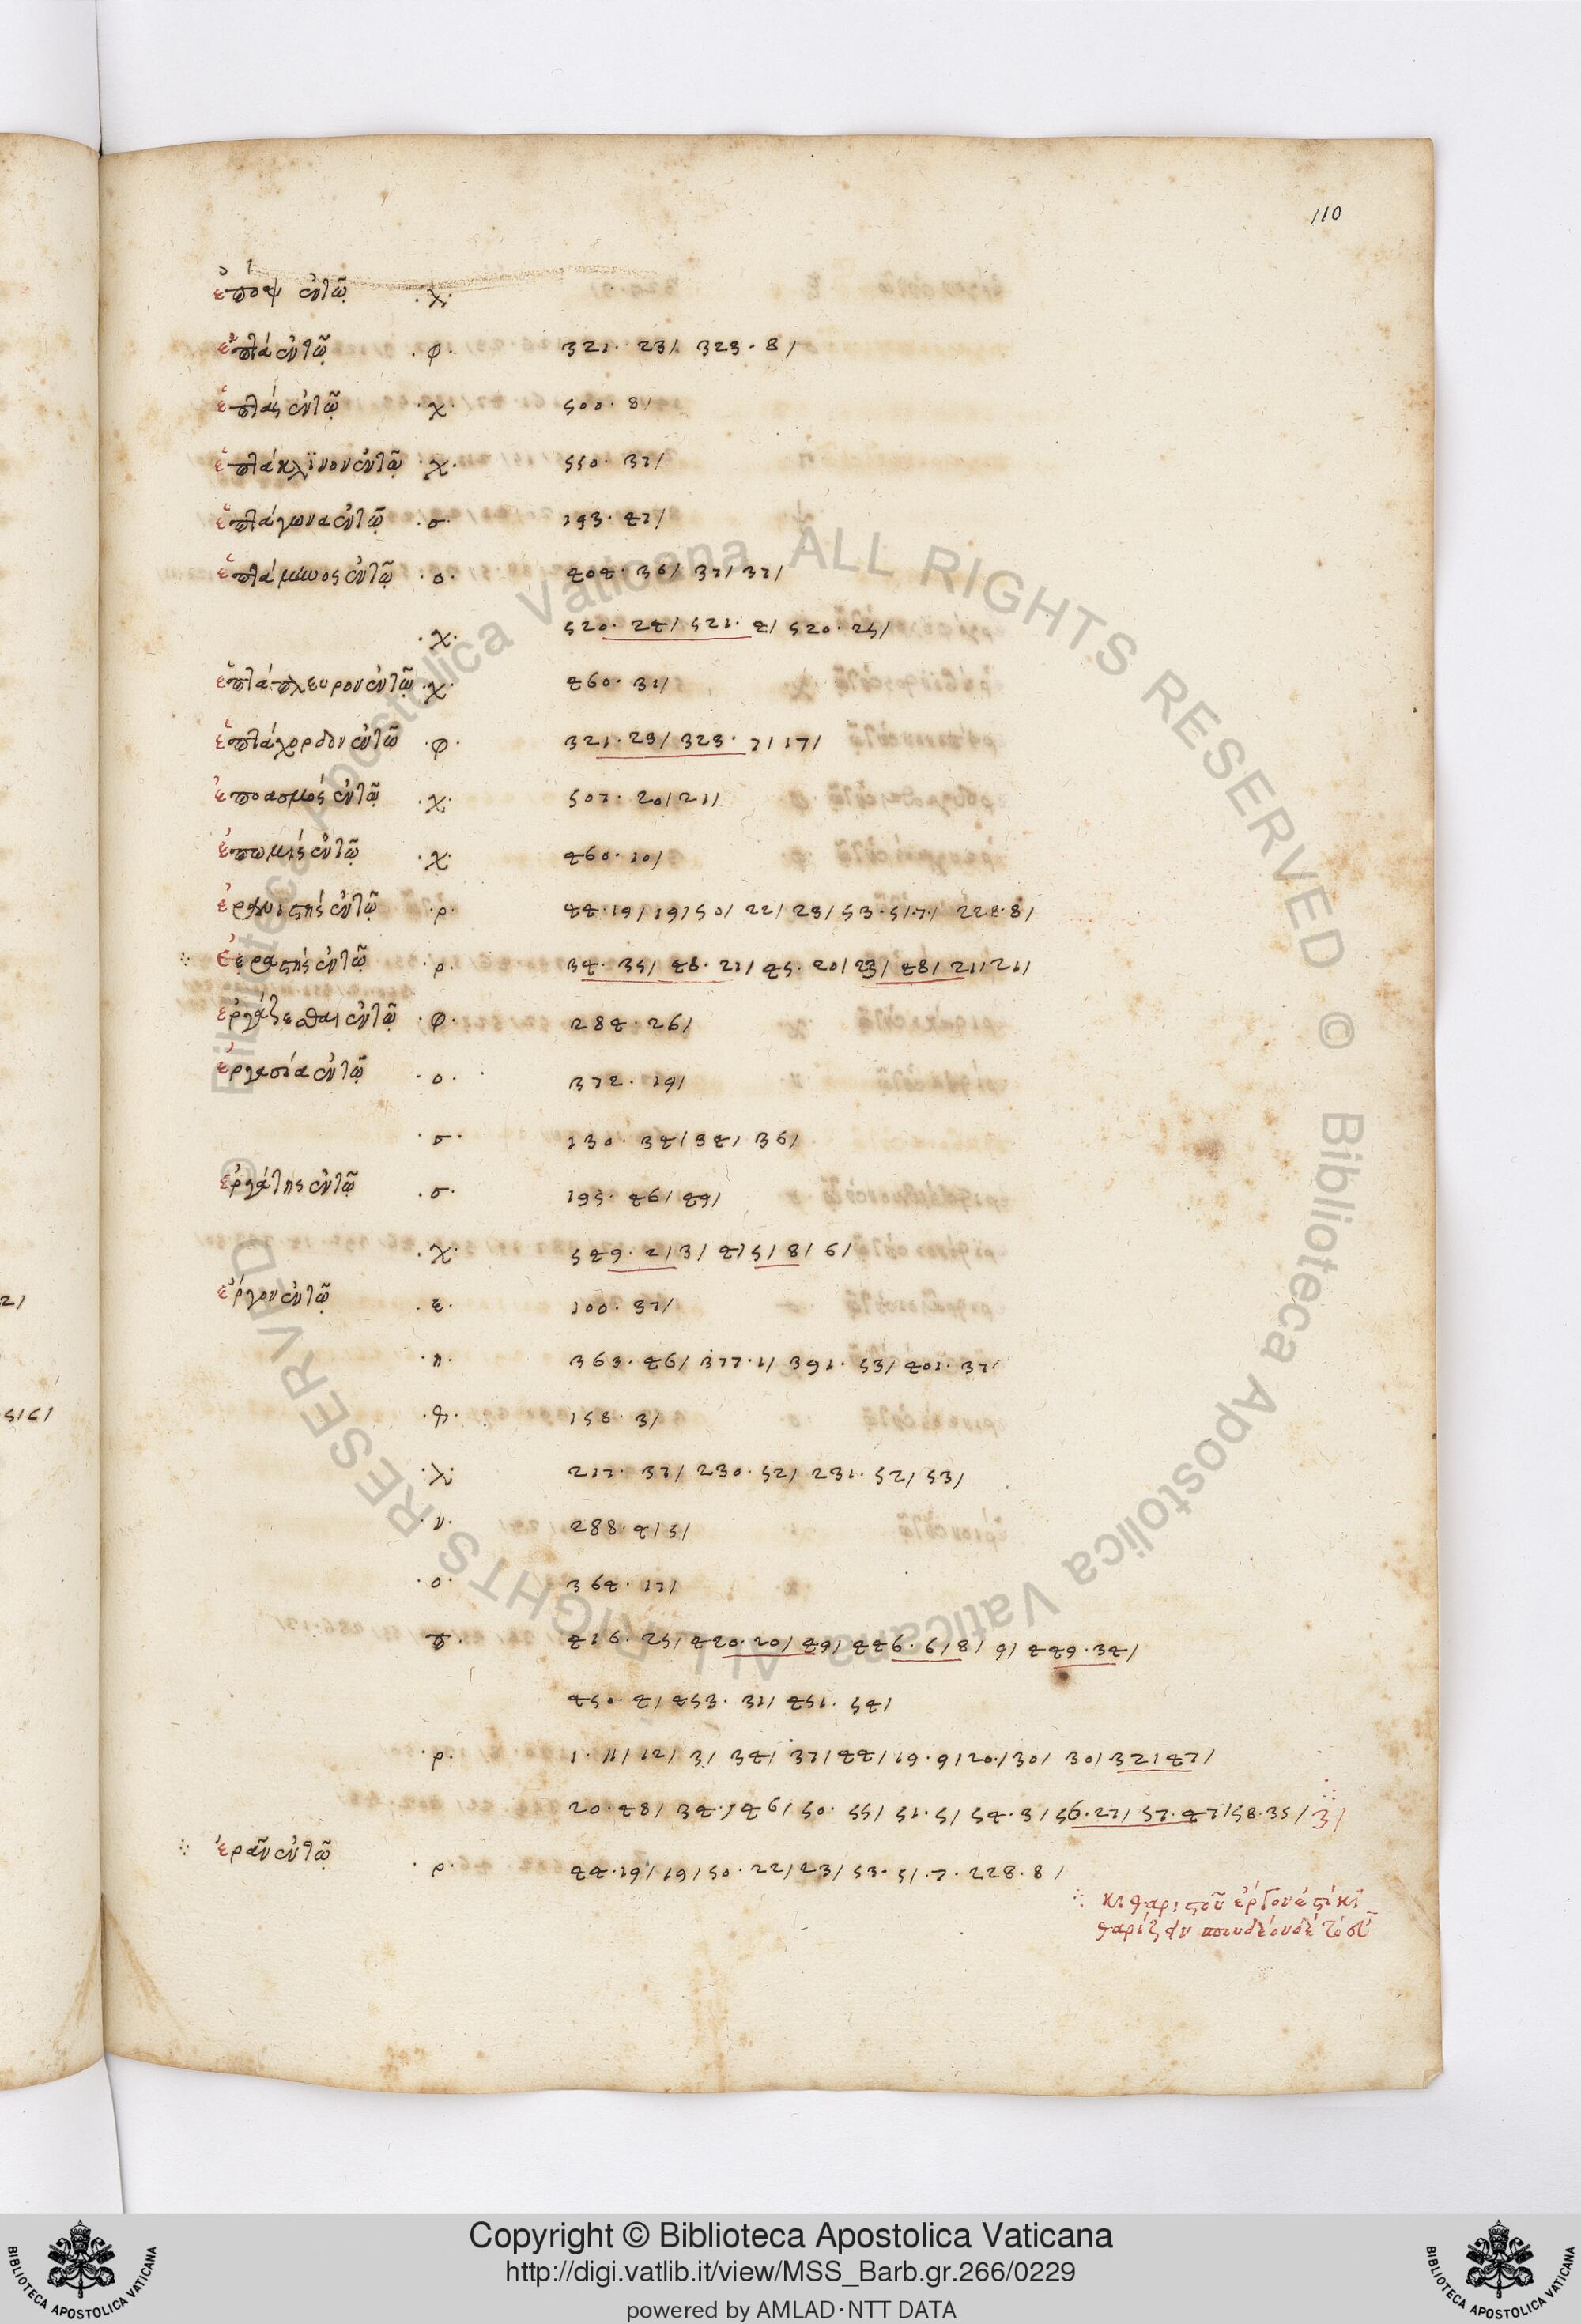 110
ἔποψ ἐν τῷ ·χ·
ἑπτὰ ἐν τῷ ·φ· 321· 23/ 323· 8/
ἑπτὰς ἐν τῷ ·χ· 500· 8/
ἑπτάκλινον ἐν τῷ ·χ· 550· 37/
ἑπτάγωνα ἐν τῷ ·σ· 193· 47/
ἑπτάμηνος ἐν τῷ ·ο· 404· 36/ 37/ 37/
·χ· 520· 24/ 521· 4/ 520· 25/
ἑπτάπλευρον ἐν τῷ ·χ· 460· 31/
ἑπτάχορδον ἐν τῷ ·φ· 321· 23/ 323· 7/ 17/
ἐποασμός ἐν τῷ ·χ· 507· 20/ 21/
ἐπωμίς ἐν τῷ ·χ· 460· 10/
ἐν τῷ ·ρ· 44· 19/ 19/ 50/ 22/ 23/ 53· 5/ ·7·/ 228· 8/
ἐραστής ἐν τῷ ·ρ· 34· 35/ 48· 21/ 45· 20/ 23/ 48/ 21/ 21/
ἐργάζεσθαι ἐν τῷ ·φ· 284· 26/
ἐργασία ἐν τῷ ·ο· 372· 19/
·σ· 130· 34/ 34/ 36/
ἐργάτης ἐν τῷ ·σ· 195· 46/ 49/
·χ· 549· 2/ 3/ 4/ 5/ 8/ 6/
ἔργον ἐν τῷ ·ε· 100· 37/
·η· 363· 46/ 377· 1/ 391· 53/ 401· 37/
·θ· 158· 3/
·λ· 217· 37/ 230· 52/ 231· 52/ 53/
·ν· 288· 4/ 5/
·ο· 364· 17/
·π· 416· 25/ 420· 20/ 49/ 446· 6/ 8/ 9/ 449· 34/
450· 4/ 453· 31/ 451· 54/
·ρ· 1· 11/ 12/ 3/ 34/ 37/ 44/ 19· 9/ 20·/ 30/ 30/ 32/ 47/
20· 48/ 34·/ 46/ 50· 55/ 51· 5/ 54· 3/ 56· 27/ 57· 47/ 58· 35/ 3/
ἐρᾶν ἐν τῷ ·ρ· 44· 19/ 19/ 50· 22/ 23/ 53· 5/ ·7· 228· 8/
κιθαριστοῦ ἔργον ἐστὶ κι-
θαρίζειν σπουδαίου δὲ τὸ εὖ
2/
5/6/
Biblioteca Apostolica Vaticana ALL RIGHTS RESERVED ©
Biblioteca Apostolica Vaticana ALL RIGHTS RESERVED ©
Copyright © Biblioteca Apostolica Vaticana
http://digi.vatlib.it/view/MSS_Barb.gr.266/0229
powered by AMLAD·NTT DATA
BIBLIOTECA APOSTOLICA VATICANA
BIBLIOTECA APOSTOLICA VATICANA